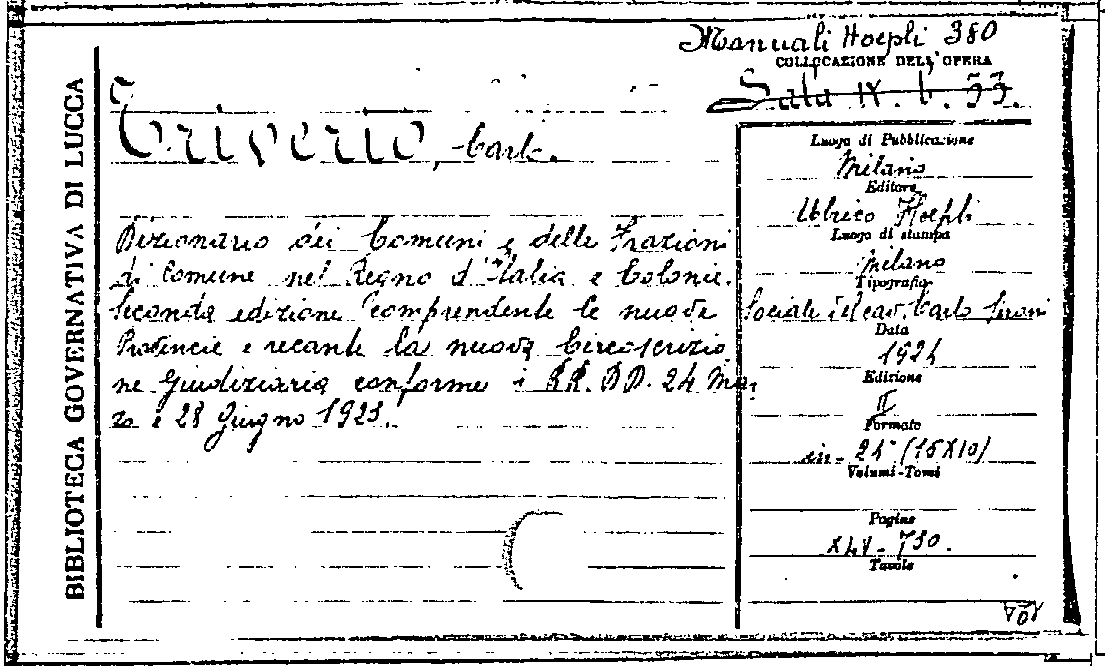 BIBLIOTECA GOVERNATIVA DI LUCCA
Manuali Hoepli 380
COLLOCAZIONE DELL'OPERA
Sala IX. b. 55.
Triverio, Carlo.
Dizionario dei Comuni e delle Frazioni
di Comune nel Regno d'Italia e Colonie.
Seconda edizione comprendente le nuove
Provincie e recante la nuova Circoscrizio
ne Giudiziaria conforme i RR. DD. 24 Mar
zo e 28 Giugno 1923.
Luogo di Pubblicazione
Milano
Editore
Ulrico Hoepli
Luogo di stampa
Milano
Tipografia
Sociale del cav. Carlo Sironi
Data
1924
Edizione
II
Formato
in-24° (15X10)
Volumi-Tomi
Pagine
XLV-730.
Tavole